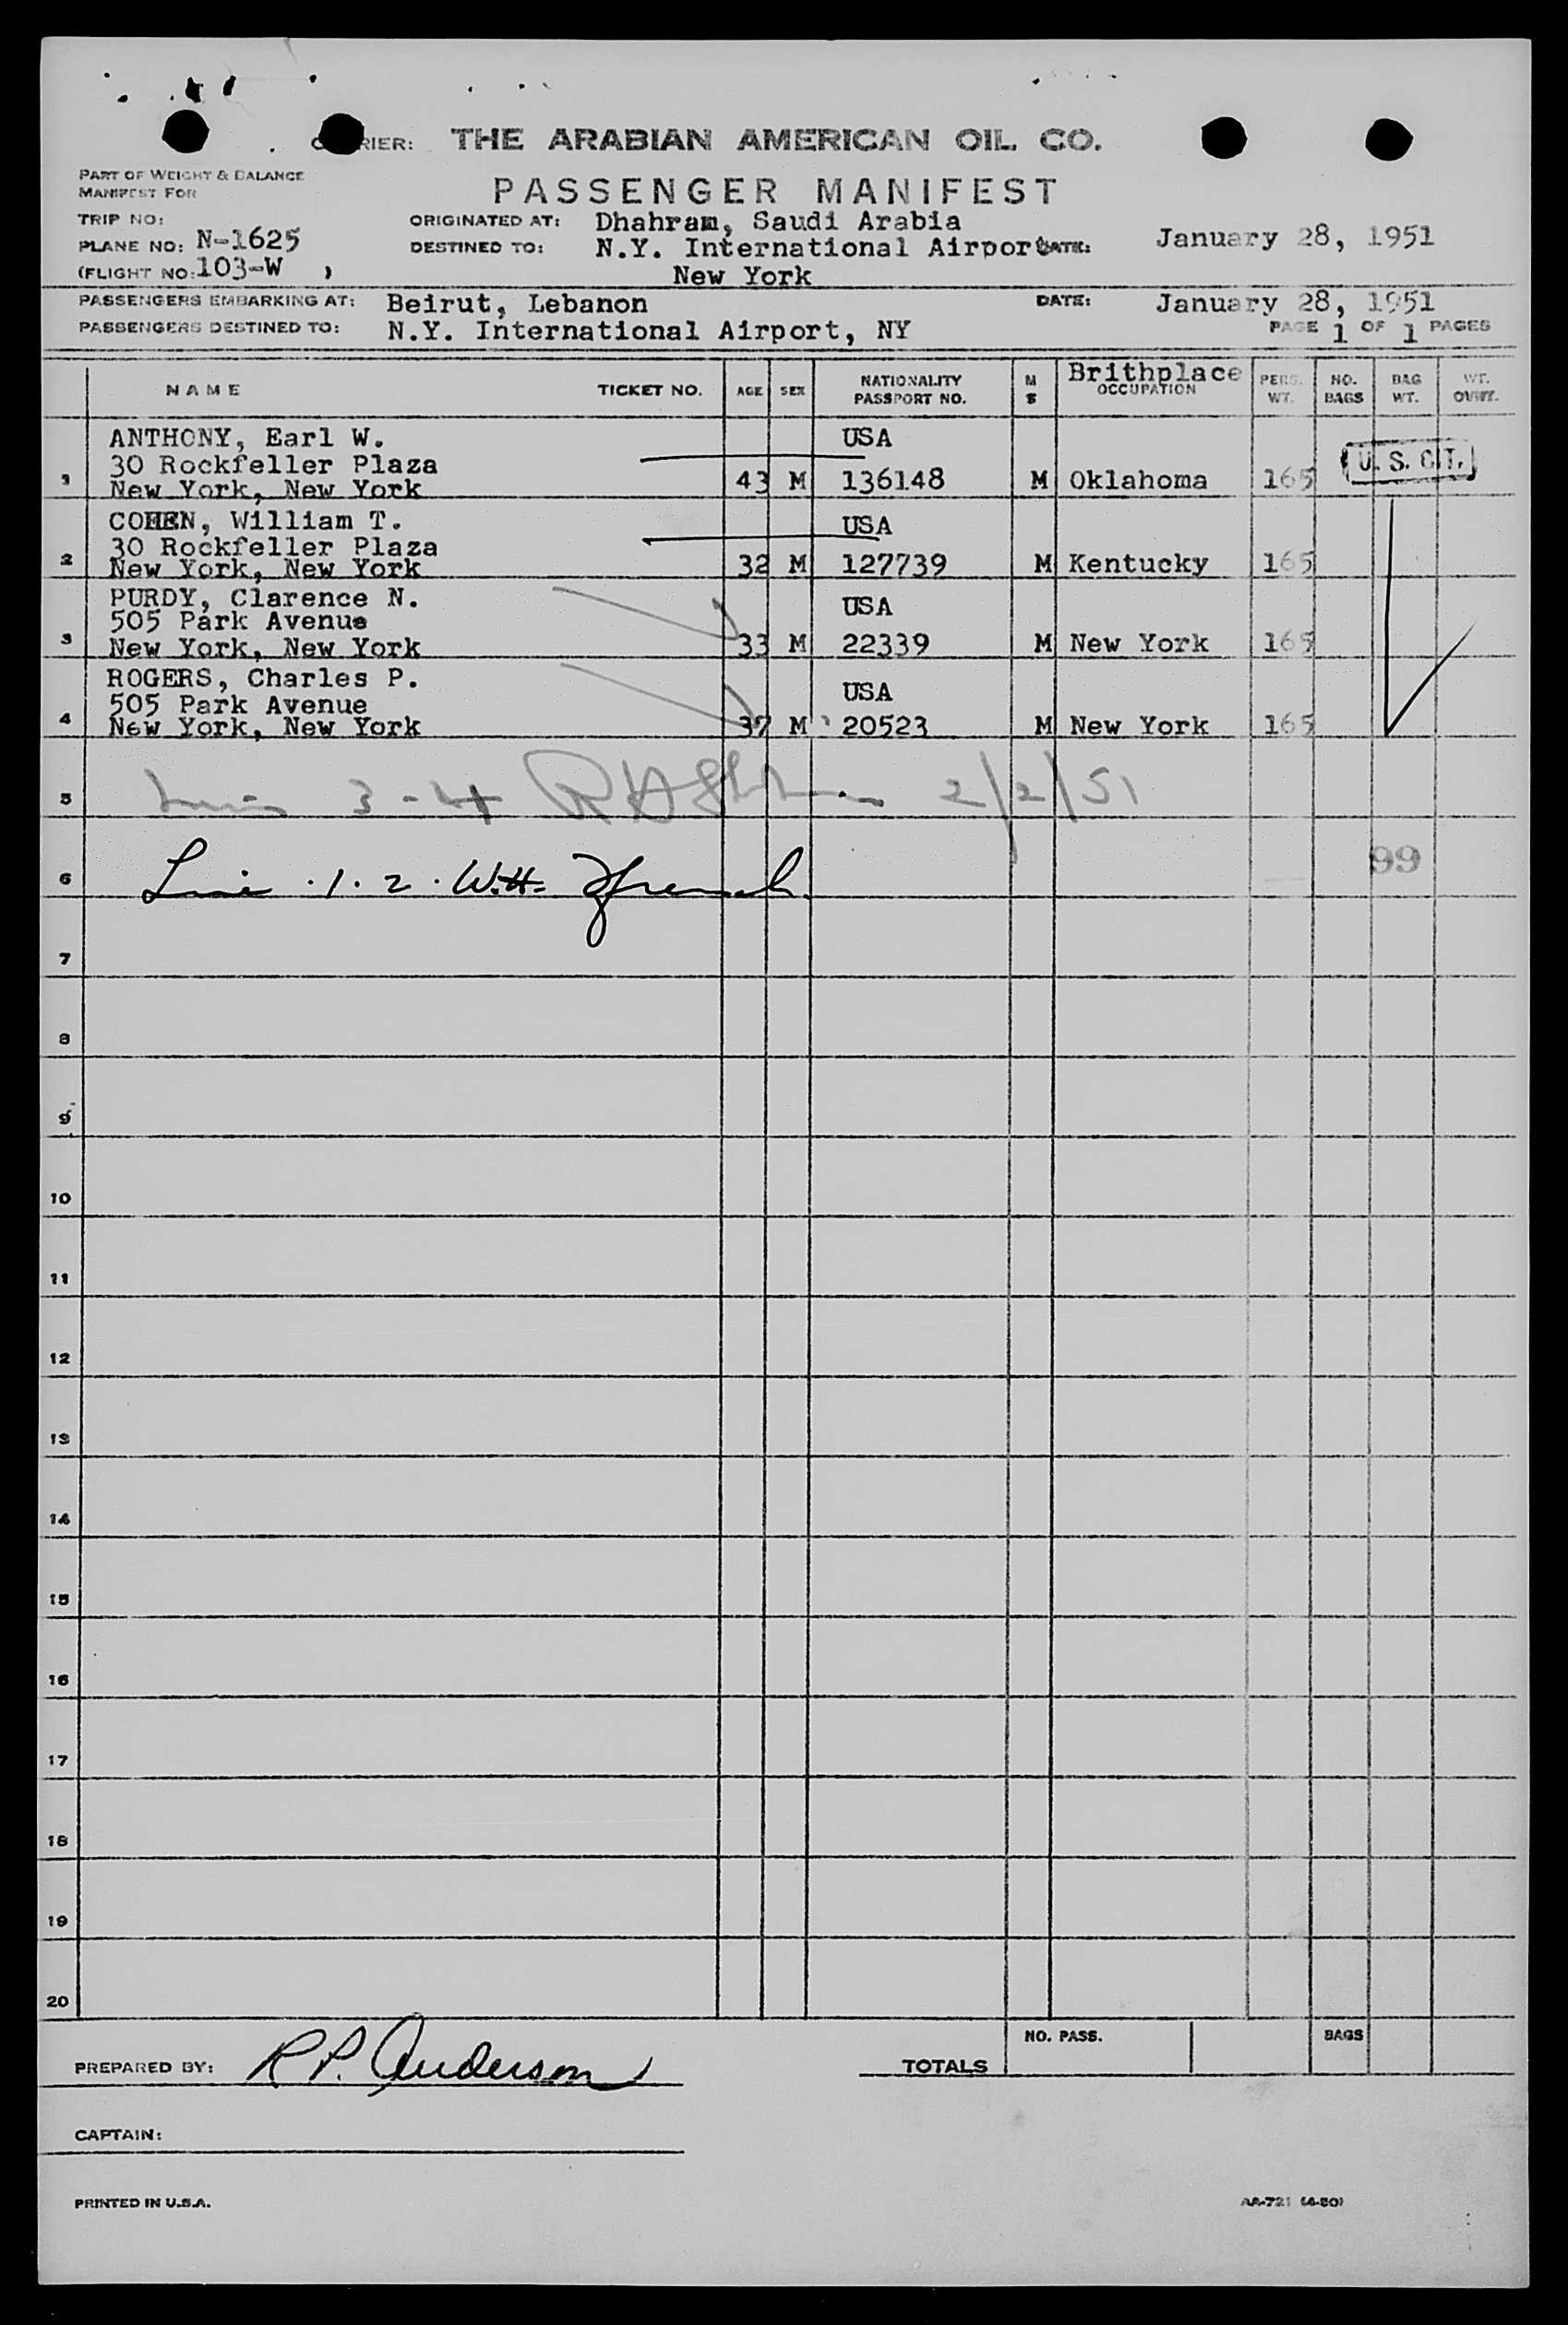 CARRIER: THE ARABIAN AMERICAN OIL CO.
PART OF WEIGHT & BALANCE
MANIFEST FOR
PASSENGER MANIFEST
TRIP NO:
ORIGINATED AT: Dhahram, Saudi Arabia
PLANE NO: N-1625
DESTINED TO: N.Y. International Airport DATE: January 28, 1951
(FLIGHT NO: 103-W )
New York
PASSENGERS EMBARKING AT: Beirut, Lebanon DATE: January 28, 1951
PASSENGERS DESTINED TO: N.Y. International Airport, NY PAGE 1 OF 1 PAGES
NAME TICKET NO. AGE SEX NATIONALITY PASSPORT NO. M S Brithplace OCCUPATION PERS. WT. NO. BAGS BAG WT. WT. OUWT.
ANTHONY, Earl W. USA
30 Rockfeller Plaza U. S. CIT.
1 New York, New York 43 M 136148 M Oklahoma 165
COHEN, William T. USA
30 Rockfeller Plaza
2 New York, New York 32 M 127739 M Kentucky 165
PURDY, Clarence N. USA
505 Park Avenue
3 New York, New York 33 M 22339 M New York 165
ROGERS, Charles P. USA
505 Park Avenue
4 New York, New York 37 M 20523 M New York 165
5 3-4 2/2/51
6 Line .1.2. W.H. French 99
7
8
9
10
11
12
13
14
15
16
17
18
19
20
NO. PASS. BAGS
PREPARED BY: R P. Anderson TOTALS
CAPTAIN:
PRINTED IN U.S.A. AA-721 (4-50)